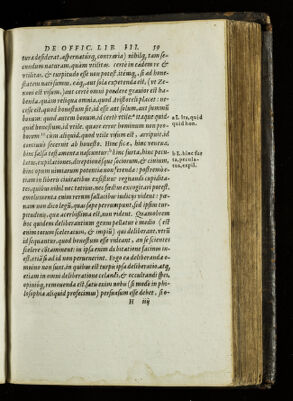 DE OFFIC. LIB III. 59
tura desiderat, aspernaturq, contraria) nihilq, tam se-
cundum naturam, quàm vtilitas. certè in eadem re &
vtilitas, & turpitudo esse non potest. itémq, si ad hone-
statem nati sumus, eaq, aut sola expetenda est, (vt Ze-
noni est visum,) aut certè omni pondere grauior est ha-
benda, quàm reliqua omnia, quod Aristoteli placet: ne-
cesse est, quod honestum sit, id esse aut solum, aut summum
bonum: quod autem bonum, id certè vtile. a itaque quid-
quid honestum, id vtile. quare error hominum non pro-
borum cùm aliquid, quod vtile visum est, arripuit, id
continuò secernit ab honesto. Hinc sicæ, hinc venena,
hinc falsa testamenta nascuntur: b hinc furta, hinc pecu-
latus, expilationes, direptionésque sociorum, & ciuium,
hinc opum nimiarum potentiæ non ferendæ: postremò e-
tiam in liberis ciuitatibus existunt regnandi cupidita-
tes, quibus nihil nec tetrius, nec fœdius excogitari potest.
emolumenta enim rerum fallacibus iudiciis vident: pœ-
nam non dico legū, quas sæpe perrumpunt, sed ipsius tur-
pitudinis, quæ acerbissima est, non vident. Quamobrem
hoc quidem deliberantium genus pellatur è medio (est
enim totum sceleratum, & impiū) qui deliberant, vtrū
id sequantur, quod honestum esse videant, an se scientes
scelere contaminent: in ipsa enim dubitatione facinus in-
est, etiā si ad id non peruenerint. Ergo ea deliberanda o-
mnino non sunt, in quibus est turpis ipsa deliberatio. atq,
etiam in omni deliberatione celandi, & occultandi spes,
opinióq, remouenda est. satis enim nobis (si modò in phi-
losophia aliquid profecimus) persuasum esse debet, si o-
H iij
a L. ita, quid
quid hon.
b L. hinc fur
ta, pecula-
tus, expil.